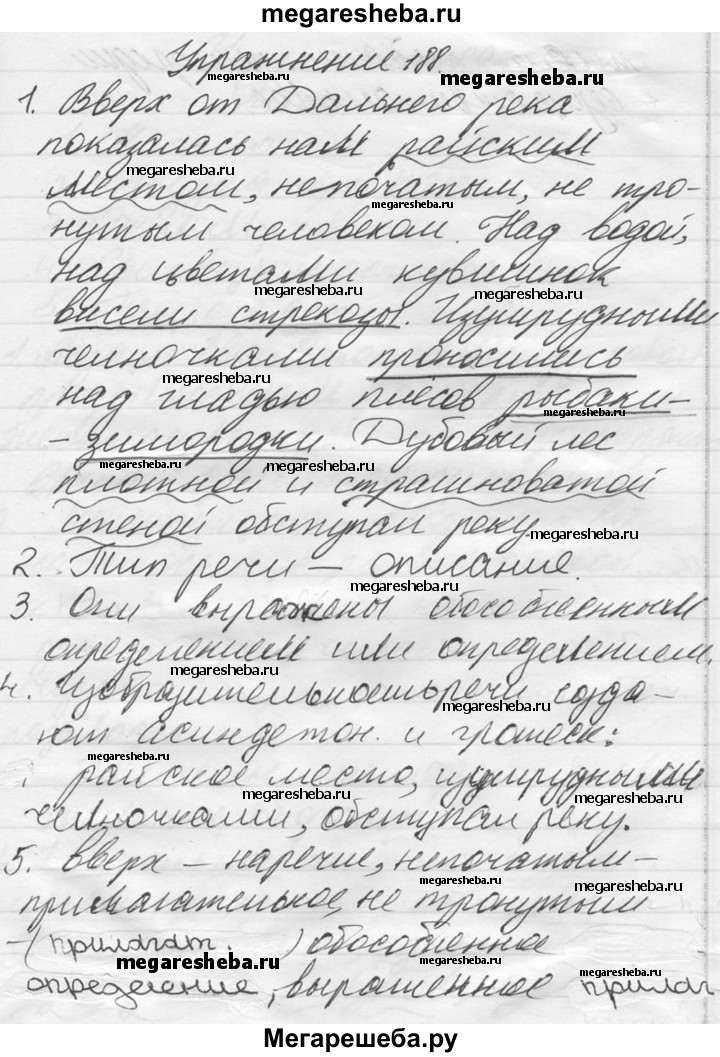 megaresheba.ru
Упражнение 188
megaresheba.ru
megaresheba.ru
1. Вверх от Дальнего река
megaresheba.ru
показалась нам райским
megaresheba.ru
местом, непочатым, не тро-
megaresheba.ru
нутым человеком. Над водой,
над цветами кувшинок
megaresheba.ru
megaresheba.ru
висели стрекозы. Изумрудными
челночками проносились
megaresheba.ru
над гладью плёсов рыбаки-
megaresheba.ru
-зимородки. Дубовый лес
megaresheba.ru
megaresheba.ru
плотной и страшноватой
стеной обступал реку.
megaresheba.ru
2. Тип речи – описание.
megaresheba.ru
3. Они выражены обособленным
megaresheba.ru
определением или определением.
megaresheba.ru
4. Изобразительность речи созда-
megaresheba.ru
ют асиндетон. и гротеск:
megaresheba.ru
райское место, изумрудными
megaresheba.ru
челночками, обступал реку.
megaresheba.ru
5. Вверх – наречие, непочатым –
megaresheba.ru
megaresheba.ru
прилагательное, не тронутым
– (прилагат. ) обособленное
megaresheba.ru
megaresheba.ru
megaresheba.ru
определение, выраженное прилаг
Мегарешеба.ру